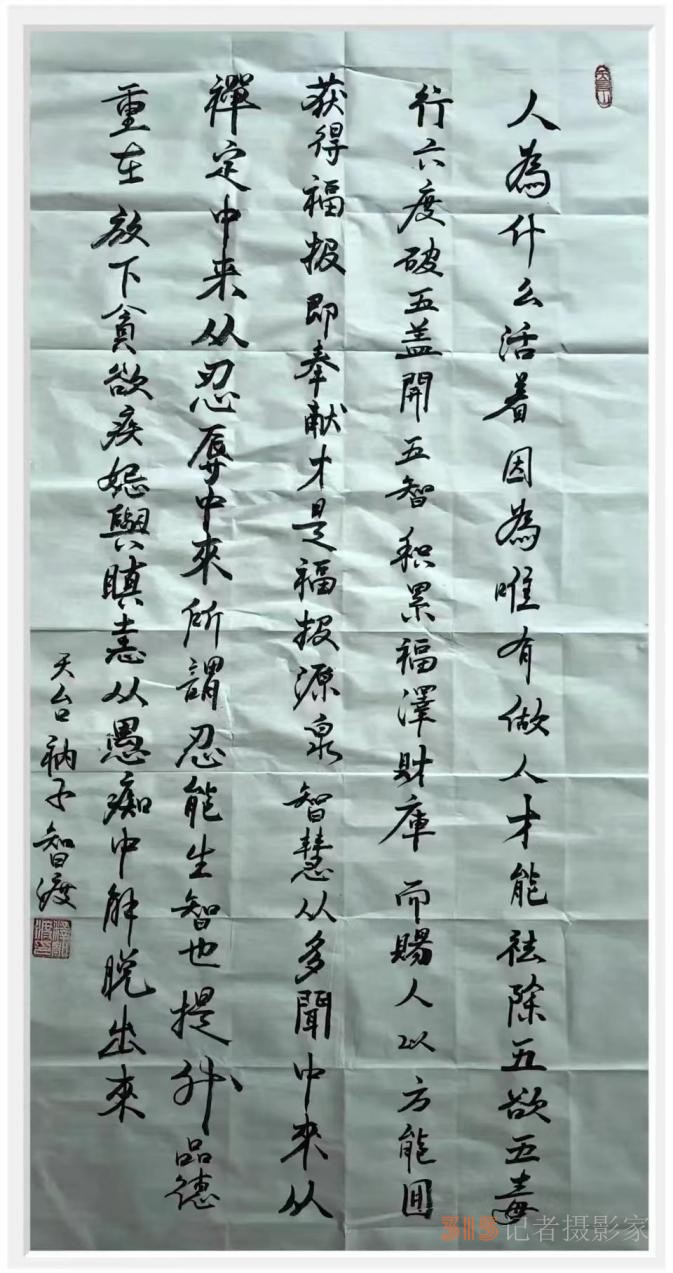 人為什么活着因為唯有做人才能祛除五欲五毒
行六度破五盖開五智积累福澤財庫而賜人以方能囬
获得福报即奉献才是福报源泉智慧从多聞中來从
禪定中来从忍辱中來所謂忍能生智也提升品德
重在放下貪欲疾怨與瞋恚从愚痴中解脱出來
天台衲子智渡
315记者摄影家